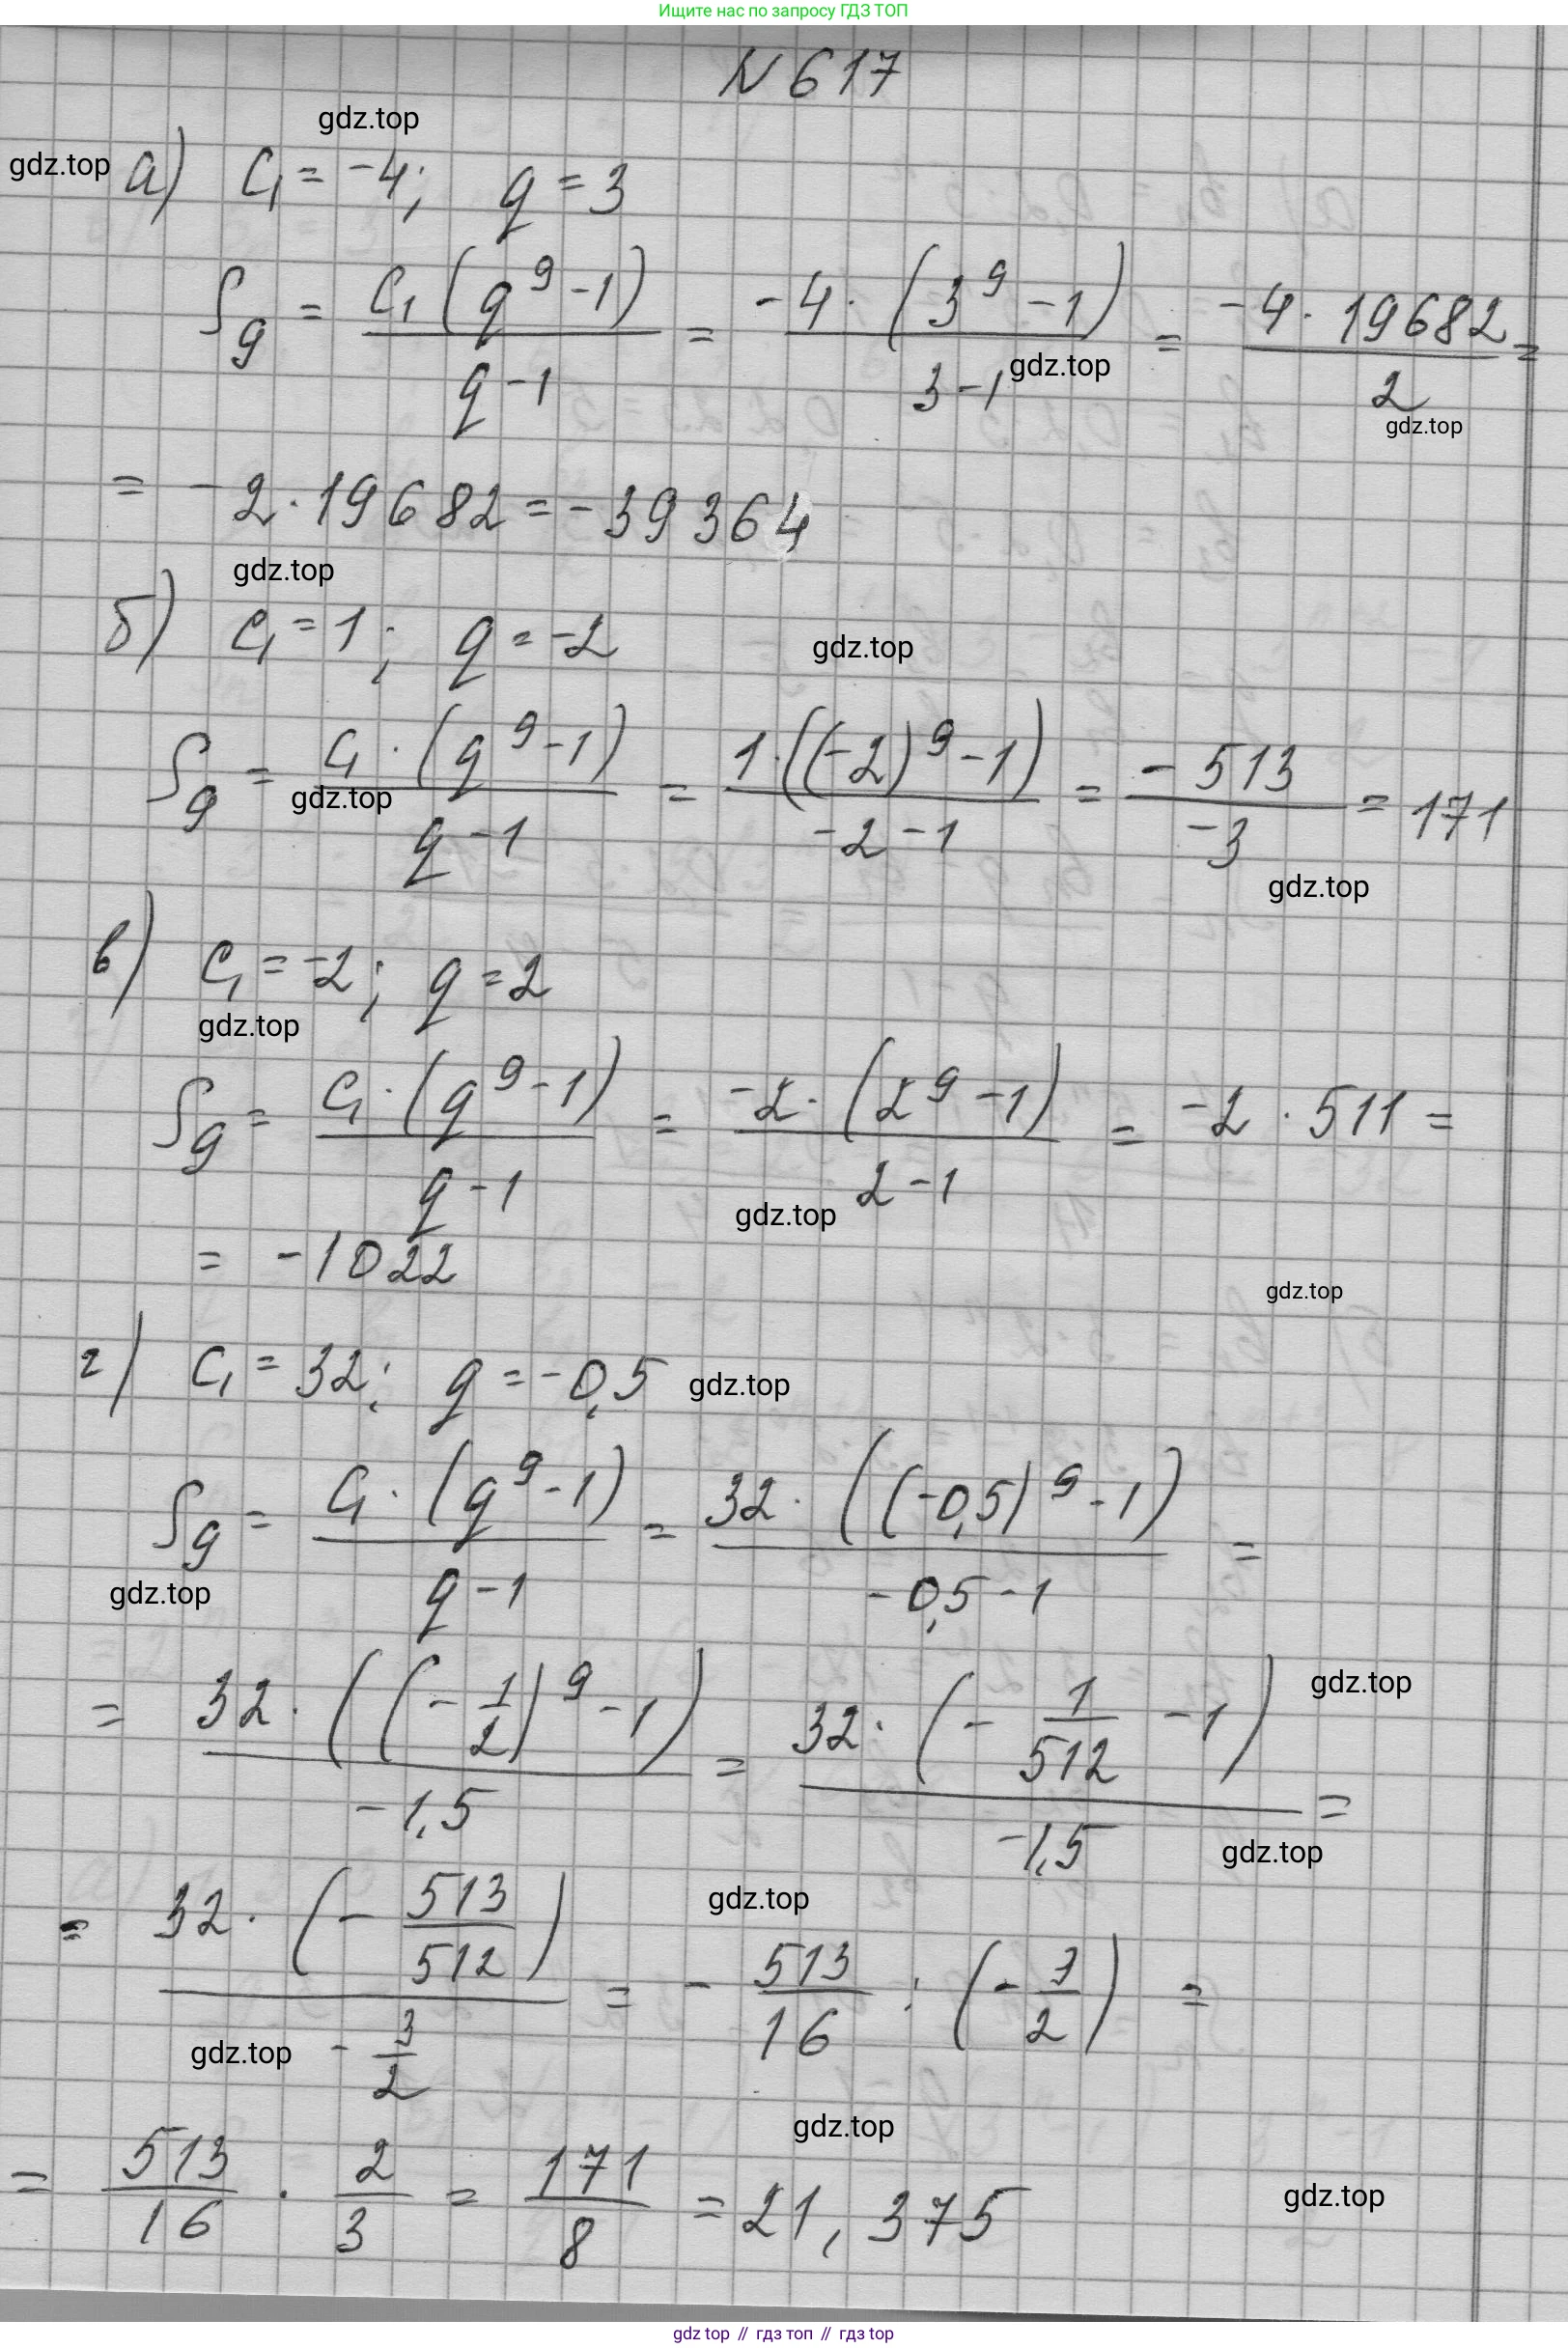 Ищите нас по запросу ГДЗ ТОП
N 617
gdz.top
gdz.top а) C₁ = -4; q = 3
S₉ = C₁(q⁹-1)/(q-1) = -4·(3⁹-1)/(3-1) = -4·19682/2 =
gdz.top
gdz.top
= -2·19682 = -39364
gdz.top
б) C₁ = 1; q = -2
gdz.top
S₉ = C₁·(q⁹-1)/(q-1) = 1·((-2)⁹-1)/(-2-1) = -513/-3 = 171
gdz.top
gdz.top
в) C₁ = -2; q = 2
gdz.top
S₉ = C₁·(q⁹-1)/(q-1) = -2·(2⁹-1)/(2-1) = -2·511 =
gdz.top
= -1022
gdz.top
г) C₁ = 32; q = -0,5 gdz.top
S₉ = C₁·(q⁹-1)/(q-1) = 32·((-0,5)⁹-1)/(-0,5-1) =
gdz.top
= 32·((-1/2)⁹-1)/(-1,5) = 32·(-1/512-1)/(-1,5) =
gdz.top
gdz.top
= 32·(-513/512)/(-3/2) = -513/16 : (-3/2) =
gdz.top
gdz.top
gdz.top
= 513/16 · 2/3 = 171/8 = 21,375
gdz.top
gdz top // гдз топ // гдз top